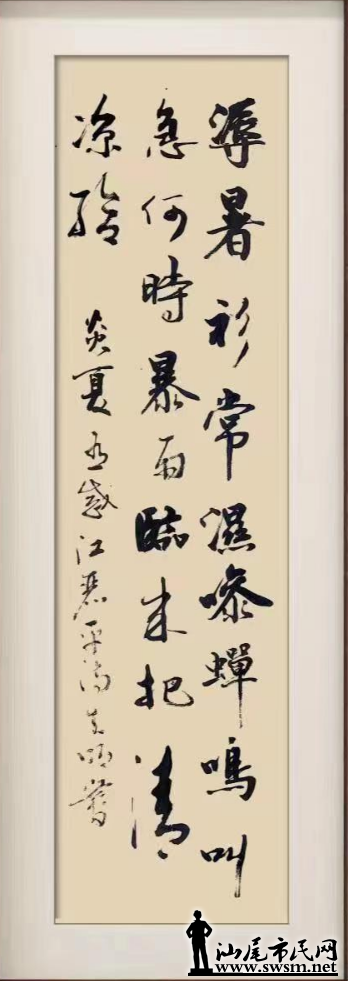 溽暑衫常濕噪蟬鳴叫
急何時暴雨臨来把清
凉給
炎夏有感江惠平
汕尾市民网
www.swsm.net